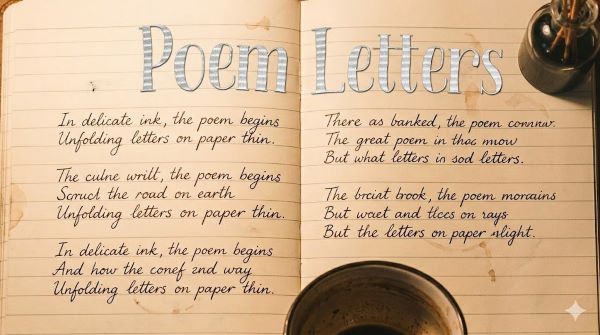 Poem Letters
In delicate ink, the poem begins
Unfolding letters on paper thin.
The culne writt, the poem begins
Scruct the road on earth
Unfolding letters on paper thin.
In delicate ink, the poem begins
And how the conef and way
Unfolding letters on paper thin.
There as banked, the poem
The great poem in thac mow
But what letters in sod letters.
The brciat brook, the poem morcains
But and on rays
But the letters on paper slight.